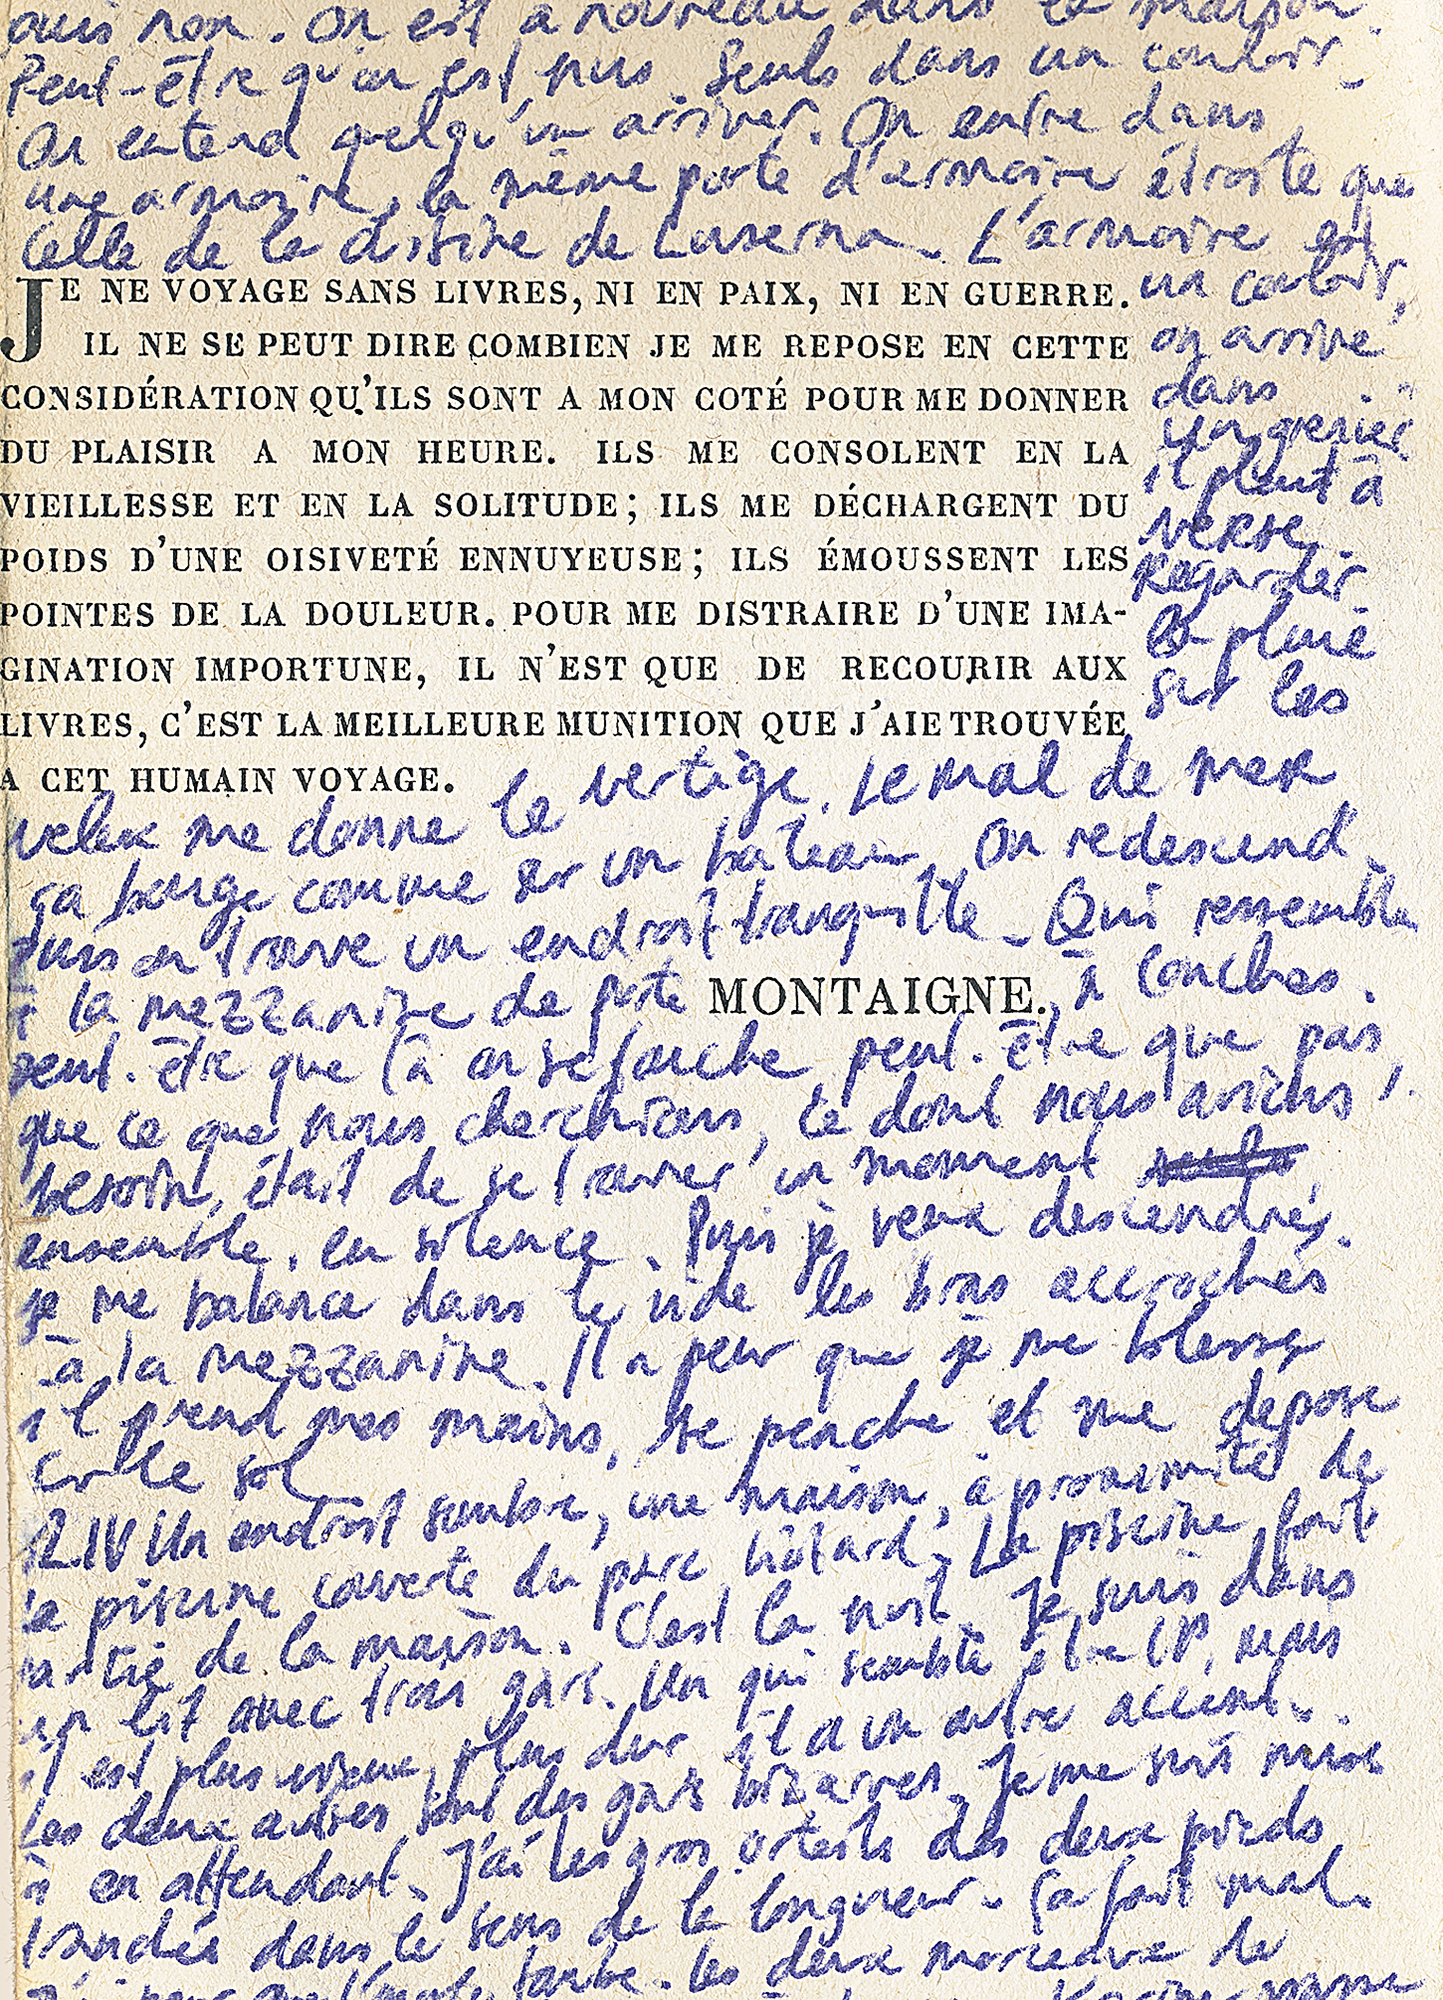 puis non. On est à nouveau dans la maison.
Peut-être qu'on est nus. Seuls dans un couloir.
On entend quelqu'un arriver. On entre dans
une armoire, la même porte d'armoire étroite que
celle de la de Luserna. L'armoire est
un couloir,
on arrive
dans
un grenier
il pleut à
verse.
Regarder
la pluie
sur les
JE NE VOYAGE SANS LIVRES, NI EN PAIX, NI EN GUERRE.
IL NE SE PEUT DIRE COMBIEN JE ME REPOSE EN CETTE
CONSIDÉRATION QU'ILS SONT A MON COTÉ POUR ME DONNER
DU PLAISIR A MON HEURE. ILS ME CONSOLENT EN LA
VIEILLESSE ET EN LA SOLITUDE; ILS ME DÉCHARGENT DU
POIDS D'UNE OISIVETÉ ENNUYEUSE; ILS ÉMOUSSENT LES
POINTES DE LA DOULEUR. POUR ME DISTRAIRE D'UNE IMA-
GINATION IMPORTUNE, IL N'EST QUE DE RECOURIR AUX
LIVRES, C'EST LA MEILLEURE MUNITION QUE J'AIE TROUVÉE
A CET HUMAIN VOYAGE.
velux me donne le vertige, le mal de mer
ça bouge comme sur un bateau. On redescend
puis on trouve un endroit tranquille. Qui ressemble
à la mezzanine de pote MONTAIGNE. à Conches.
peut-être que là on se touche peut-être que pas,
que ce que nous cherchions, ce dont nous avions
besoin, était de se trouver un moment
ensemble, en silence. Puis je veux descendre.
je me balance dans le vide les bras accrochés
à la mezzanine. Il a peur que je me blesse
il prend mes mains, se penche et me dépose
sur le sol
12 IV Un endroit sombre, une maison, à proximité de
la piscine couverte du parc hôtard. La piscine fait
partie de la maison. C'est la nuit. Je suis dans
un lit avec trois gars. Un qui semble être CP, mais
il est plus vieux, plus dur il a un autre accent.
Les deux autres sont des gars bizarres. Je me suis mise
là en attendant. J'ai les gros orteils des deux pieds
fendés dans le sens de la longueur. Ça fait mal.
J'ai peur que l'ongle tombe. les deux morceaux de